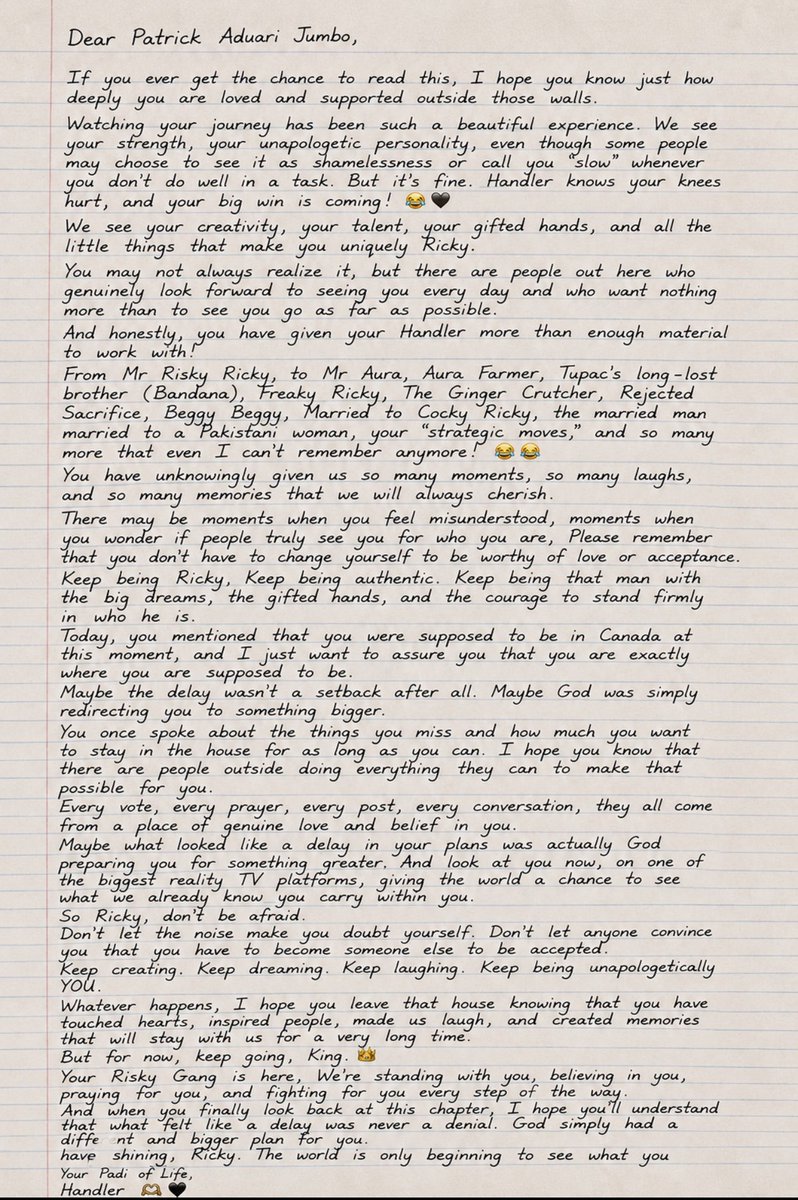 Dear Patrick Aduari Jumbo,
If you ever get the chance to read this, I hope you know just how
deeply you are loved and supported outside those walls.
Watching your journey has been such a beautiful experience. We see
your strength, your unapologetic personality, even though some people
may choose to see it as shamelessness or call you “slow” whenever
you don't do well in a task. But it's fine. Handler knows your knees
hurt, and your big win is coming! 😂🖤
We see your creativity, your talent, your gifted hands, and all the
little things that make you uniquely Ricky.
You may not always realize it, but there are people out here who
genuinely look forward to seeing you every day and who want nothing
more than to see you go as far as possible.
And honestly, you have given your Handler more than enough material
to work with!
From Mr Risky Ricky, to Mr Aura, Aura Farmer, Tupac's long-lost
brother (Bandana), Freaky Ricky, The Ginger Crutcher, Rejected
Sacrifice, Beggy Beggy, Married to Cocky Ricky, the married man
married to a Pakistani woman, your “strategic moves,” and so many
more that even I can't remember anymore! 😂😂
You have unknowingly given us so many moments, so many laughs,
and so many memories that we will always cherish.
There may be moments when you feel misunderstood, moments when
you wonder if people truly see you for who you are, Please remember
that you don't have to change yourself to be worthy of love or acceptance.
Keep being Ricky, Keep being authentic. Keep being that man with
the big dreams, the gifted hands, and the courage to stand firmly
in who he is.
Today, you mentioned that you were supposed to be in Canada at
this moment, and I just want to assure you that you are exactly
where you are supposed to be.
Maybe the delay wasn't a setback after all. Maybe God was simply
redirecting you to something bigger.
You once spoke about the things you miss and how much you want
to stay in the house for as long as you can. I hope you know that
there are people outside doing everything they can to make that
possible for you.
Every vote, every prayer, every post, every conversation, they all come
from a place of genuine love and belief in you.
Maybe what looked like a delay in your plans was actually God
preparing you for something greater. And look at you now, on one of
the biggest reality TV platforms, giving the world a chance to see
what we already know you carry within you.
So Ricky, don't be afraid.
Don't let the noise make you doubt yourself. Don't let anyone convince
you that you have to become someone else to be accepted.
Keep creating. Keep dreaming. Keep laughing. Keep being unapologetically
YOU.
Whatever happens, I hope you leave that house knowing that you have
touched hearts, inspired people, made us laugh, and created memories
that will stay with us for a very long time.
But for now, keep going, King. 👑
Your Risky Gang is here, We're standing with you, believing in you,
praying for you, and fighting for you every step of the way.
And when you finally look back at this chapter, I hope you'll understand
that what felt like a delay was never a denial. God simply had a
diffe nt and bigger plan for you.
have shining, Ricky. The world is only beginning to see what you
Your Padi of Life,
Handler 🫶🖤